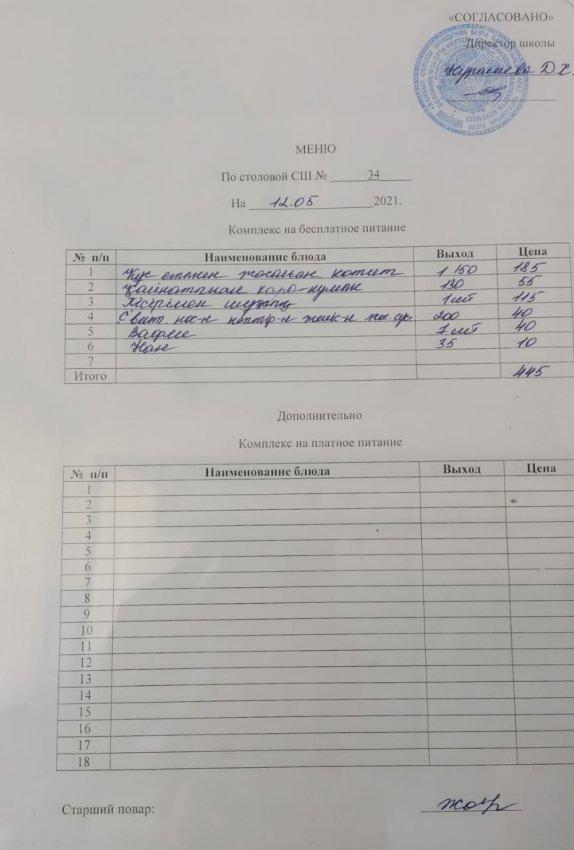 «СОГЛАСОВАНО»
Директор школы
Д.Х.
МЕНЮ
По столовой СШ № 34
На 12.05 2021.
Комплекс на бесплатное питание
№ п/п Наименование блюда Выход Цена
1 Құс етінен жасалған котлет 1/50 185
2 Қайнатпалы қара-құмық 130 55
3 1шт 115
4 200 40
5 Вафли 1шт 40
6 Нан 35 10
7
Итого 445
Дополнительно
Комплекс на платное питание
№ п/п Наименование блюда Выход Цена
1
2
3
4
5
6
7
8
9
10
11
12
13
14
15
16
17
18
Старший повар: